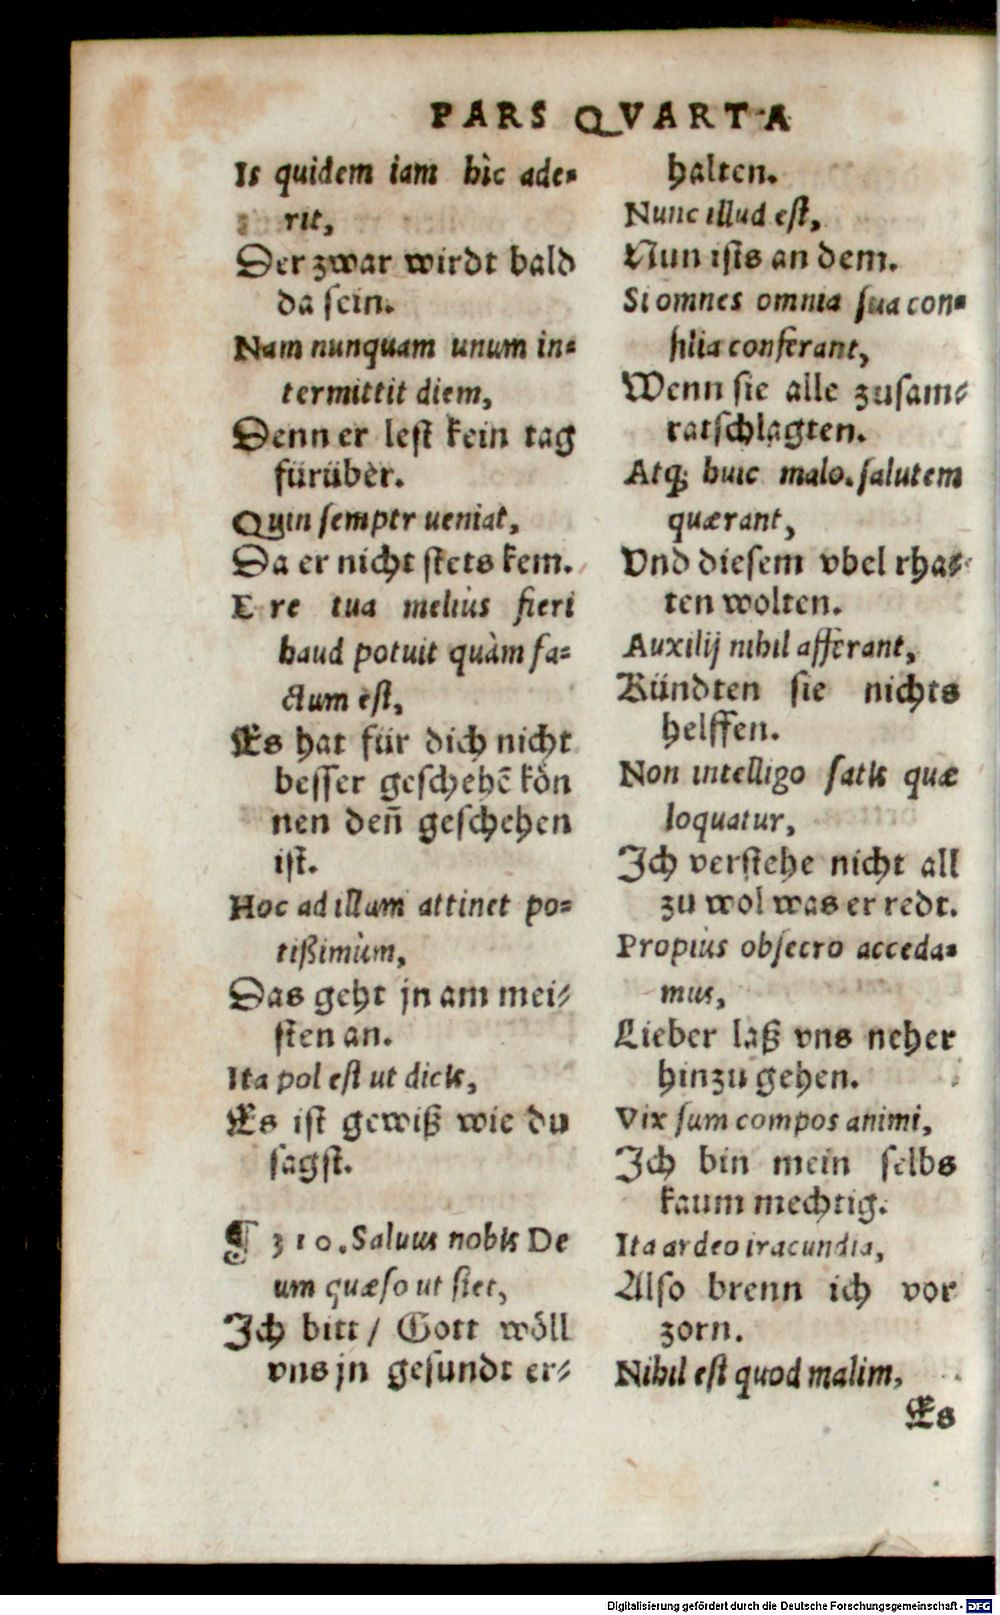 PARS QVARTA
Is quidem iam hìc ade-
rit,
Der zwar wirdt bald
da sein.
Nam nunquam unum in-
termittit diem,
Denn er lest kein tag
fürüber.
Quin semper ueniat,
Da er nicht stets kem.
E re tua melius fieri
haud potuit quàm fa-
ctum est,
Es hat für dich nicht
besser geschehẽ kön
nen deñ geschehen
ist.
Hoc ad illum attinet po-
tißimùm,
Das geht jn am mei-
sten an.
Ita pol est ut dicis,
Es ist gewiß wie du
sagst.
¶ 310. Saluus nobis De
um quæso ut siet,
Ich bitt / Gott wöll
vns jn gesundt er-
halten.
Nunc illud est,
Nun ists an dem.
Si omnes omnia sua con-
silia conferant,
Wenn sie alle zusam-
ratschlagten.
Atq; huic malo salutem
quærant,
Vnd diesem vbel rha-
ten wolten.
Auxilij nihil afferant,
Kündten sie nichts
helffen.
Non intelligo satis quæ
loquatur,
Ich verstehe nicht all
zu wol was er redt.
Propiùs obsecro acceda-
mus,
Lieber laß vns neher
hinzu gehen.
Vix sum compos animi,
Ich bin mein selbs
kaum mechtig.
Ita ardeo iracundia,
Also brenn ich vor
zorn.
Nihil est quod malim,
Es
Digitalisierung gefördert durch die Deutsche Forschungsgemeinschaft - DFG